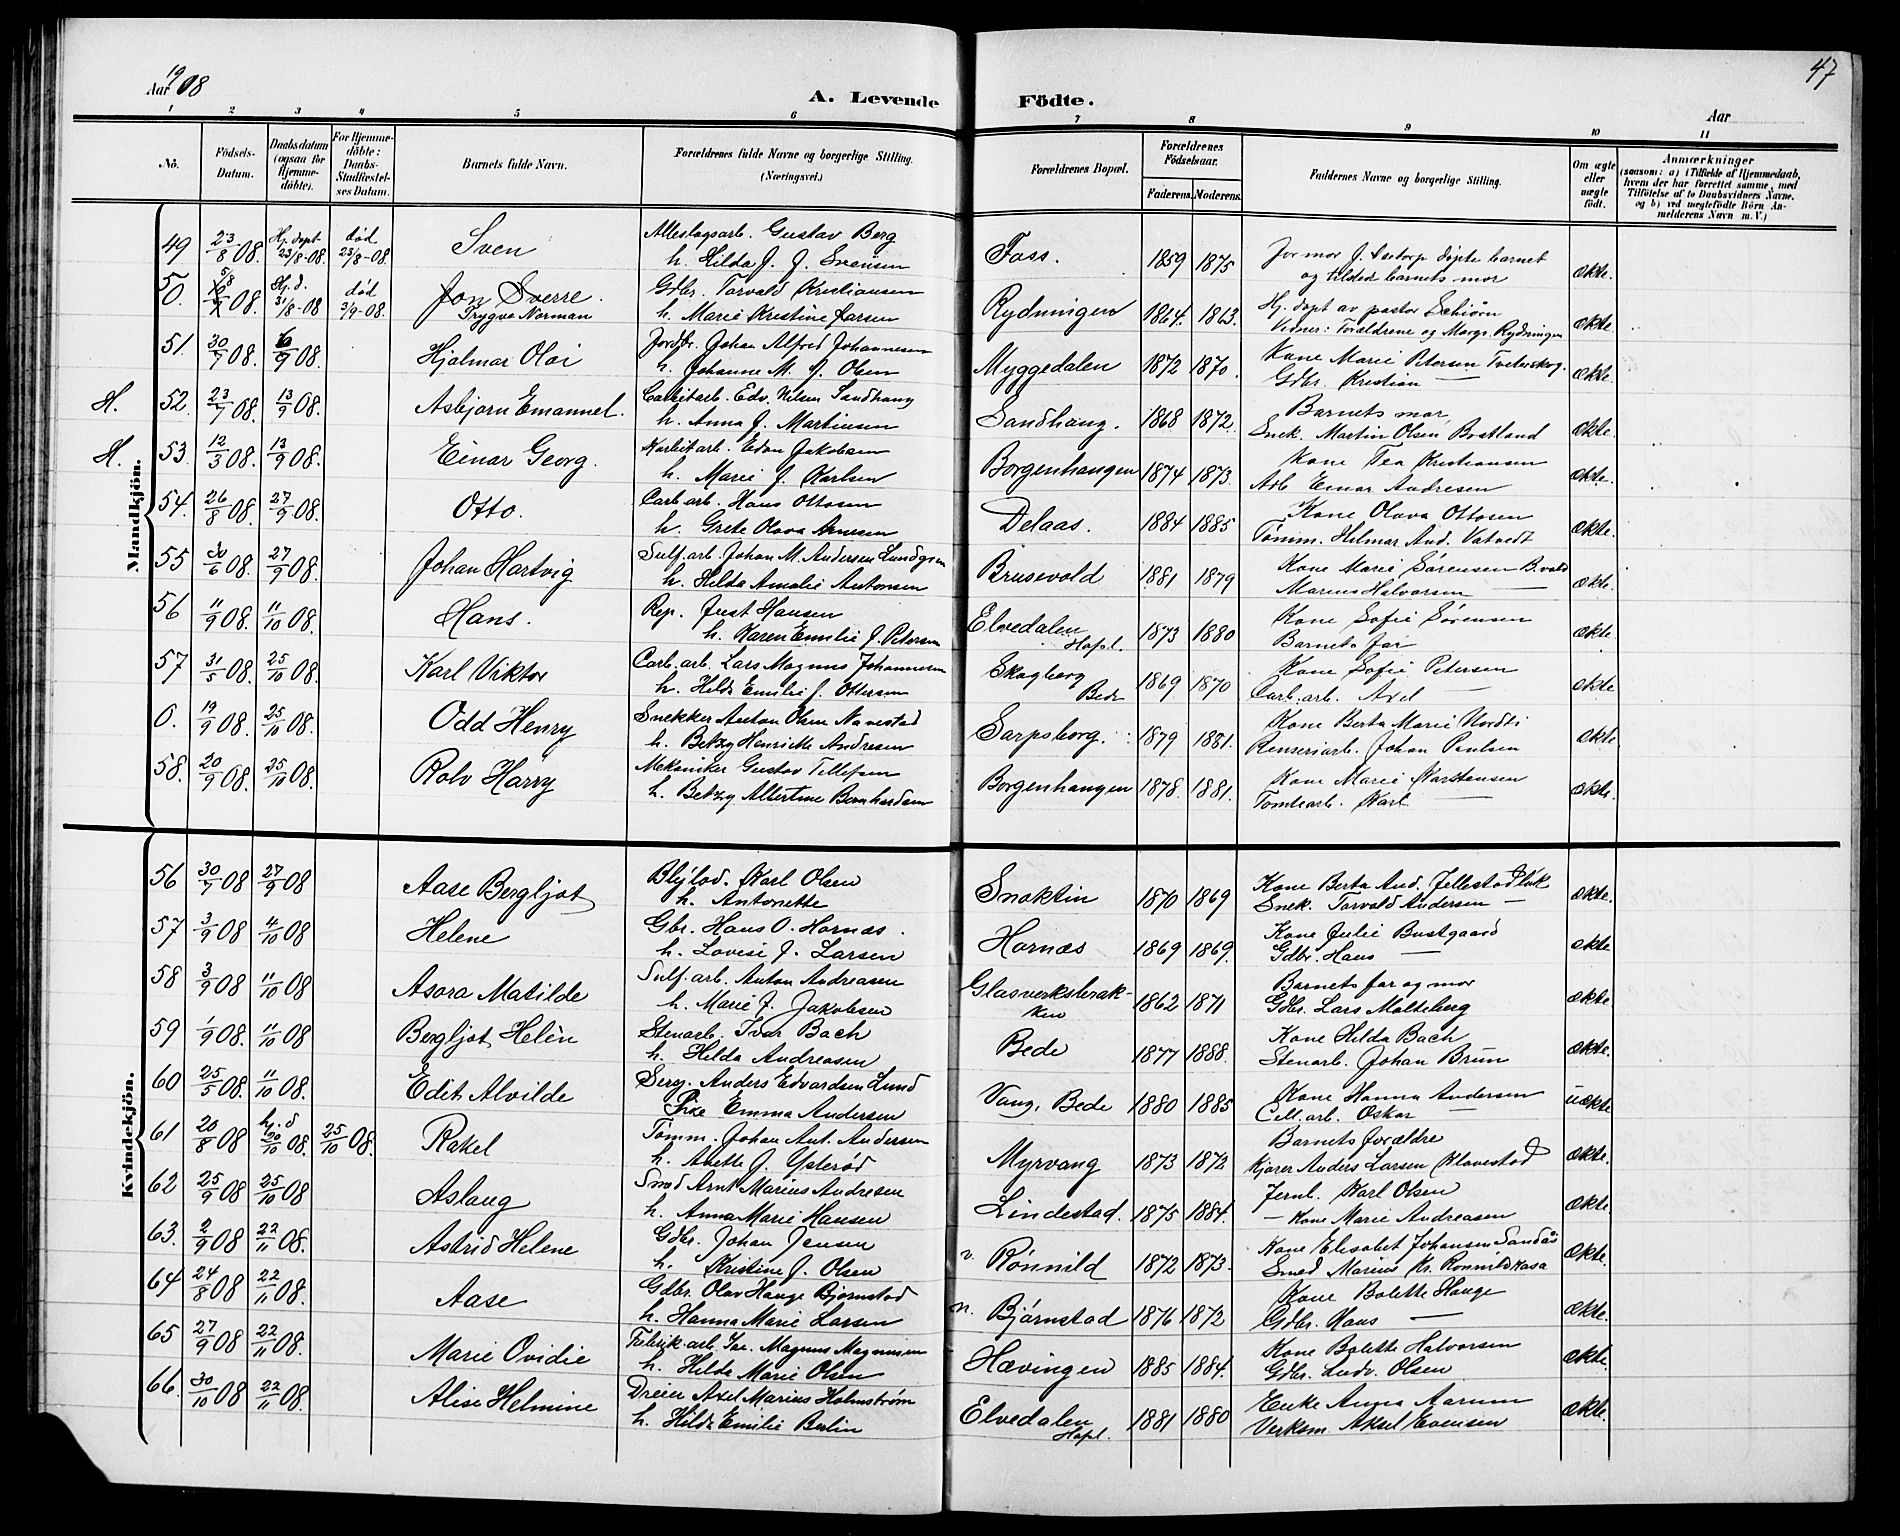 Aar 1908
A. Levende Födte.
Aar
47
1 2 3 4 5 6 7 8 9 10 11
No. Födsels-Datum. Daabsdatum (ogsaa for Hjemmedöbte). For Hjemmedöbte: Daabs-Stadfæstelses Datum. Barnets fulde Navn. Forældrenes fulde Navne og borgerlige Stilling. (Næringsvei.) Forældrenes Bopæl. Forældrenes Födselsaar. Faderens. Moderens. Faddernes Navne og borgerlige Stilling. Om ægte eller uægte födt. Anmærkninger (saasom: a) i Tilfælde af Hjemmedaab, hvem der har forrettet samme, med Tilföielse af to Daabsvidners Navne, og b) ved uegtefödte Börn Anmelderens Navn m. V.)
Mandkjön.
49 23/8 08. Hj. døpt 23/8-08. død 23/8-08. Sven Gustav Berg Foss. 1859 1875 Jormor J. døpte barnet ekte.
h. Hilda J. J. Svensen og barnets mor
50. 5/8 08. Hj. d. 31/8-08 død 3/9-08. Jon Sverre. Gdbr. Torvald Kristiansen Rydningen 1864. 1863. Hj. døpt av pastor Schiörn ekte.
Trygve Norman h. Marie Kristine Larsen Vidner: Forældrene og Margr. Rydningen
51. 30/7 08. 6/9 08. Hjalmar Olai Jordbr. Johan Alfred Johannesen Myggedalen 1872 1870. Kone Marie Petersen Tveterskog. ekte.
h. Johanne M. J. Olsen Gdbr. Kristian —
H. 52. 23/7 08. 13/9 08. Asbjørn Emanuel. Edv. Nilsen Sandhaug Sandhaug. 1868 1872. Barnets mor ekte.
h. Anna J. Martinsen Snek. Martin Olsen Bostland
H. 53. 12/3 08. 13/9 08. Einar Georg. Edon Jakobsen Borgenhaugen 1874 1873. Kone Tea Kristiansen ekte.
h. Marie J. Karlsen Arb. Einar Andresen
54. 26/8 08. 27/9 08. Otto. Carb.arb. Hans Ottosen Delaas. 1884 1885 Kone Olava Ottosen ekte.
h. Grete Olava Arnesen Tømm. Helmar And. Vatvedt
55 30/6 08. 27/9 08. Johan Hartvig Sulf.arb. Johan M. Andersen Lundgren Brusevold 1881 1879 Kone Marie Sørensen B.vold ekte.
h. Hilda Amalie Antonsen Marius Halvorsen —
56 11/9 08. 11/10 08. Hans. Rep. Just Hansen Elvedalen Hafsl. 1873 1880 Kone Sofie Sørensen ekte.
h. Karen Emilie J. Petersen Barnets far
57 31/5 08. 25/10 08. Karl Viktor Carb.arb. Lars Magnus Johannesen Skogberg Bede 1869 1870 Kone Sofie Petersen ekte
h. Hilda Emilie J. Ottersen Carb.arb. Axel —
0. 19/9 08. 25/10 08. Odd Henry Snekker Anton Olsen Navestad Sarpsborg. 1879 1881. Kone Berta Marie Nordti ekte.
h. Betzy Henriette Andresen Renseriarb. Johan Paulsen
58. 20/9 08. 25/10 08. Rolv Harry Mekaniker Gustav Tellefsen Borgenhaugen 1878. 1881. Kone Marie Karstensen ekte.
h. Betzy Albertine Bernhardsen Tomtearb. Karl —
Kvindekjön.
56 30/7 08 27/9 08 Aase Bergljot Karl Olsen Snoktin 1870 1869 Kone Berta And. Jellestad ekte.
h. Antonette Snek. Torvald Andersen —
57 3/9 08 4/10 08 Helene Gbr. Hans O. Hornæs. Hornæs 1869 1869. Kone Julie Bustgaard ekte
h. Lovise J. Larsen Gdbr. Hans —
58 3/9 08 11/10 08 Asora Matilde Sulf.arb. Anton Andreasen Glasverksbrakken 1862 1871 Barnets far og mor ekte
h. Marie J. Jakobsen Gdbr. Lars Molteberg
59 1/9 08. 11/10 08 Bergljot Helèn Stenarb. Ivar Bach Bede 1877 1888. Kone Hilda Bach ekte.
h. Hilda Andreasen Stenarb. Johan Brun
60 25/5 08. 11/10 08. Edit Alvilde Serg. Anders Edvardsen Lund Vang, Bede 1880 1885 Kone Hanna Andersen uekte
Pike Emma Andersen Cell.arb. Oskar —
61 20/8 08 hj. d 20/10 08. 25/10 08. Rakel Tømm. Johan Ant. Andersen Myrvang 1873 1872 Barnets forældre ekte.
h. Anette J. Ysterød Kjører Anders Larsen Klavestad
62 25/9 08 25/10 08 Aslaug Smed Arnt Marius Andresen Lindestad. 1875 1884. Jernb. Karl Olsen ekte.
h. Anna Marie Hansen — Kone Marie Andreasen
63. 2/9 08 22/11 08. Astrid Helene Gdbr. Johan Jensen v. Rønnild 1872 1873. Kone Elisabet Johansen Sandås ekte.
h. Kristine J. Olsen Smed Marius Kr. Rønnildkasa
64 24/8 08 22/11 08. Aase Gdbr. Olav Hauge Bjørnstad n. Bjørnstad 1876 1872 Kone Bolette Hauge ekte.
h. Hanna Marie Larsen Gdbr. Hans —
65 27/9 08 22/11 08. Marie Ovidie Fabrikarb. Magnus Magnussen Hævingen 1885 1884. Kone Bolette Halvorsen ekte.
h. Hilda Marie Olsen Gdbr. Ludv. Olsen
66. 30/10 08 22/11 08. Alise Helmine Dreier Axel Marius Holmstrøm Elvedalen Hafsl. 1881 1880 Enke Anna Aarum ekte.
h. Hilda Emilie Berlin Verksm. Aksel Evensen